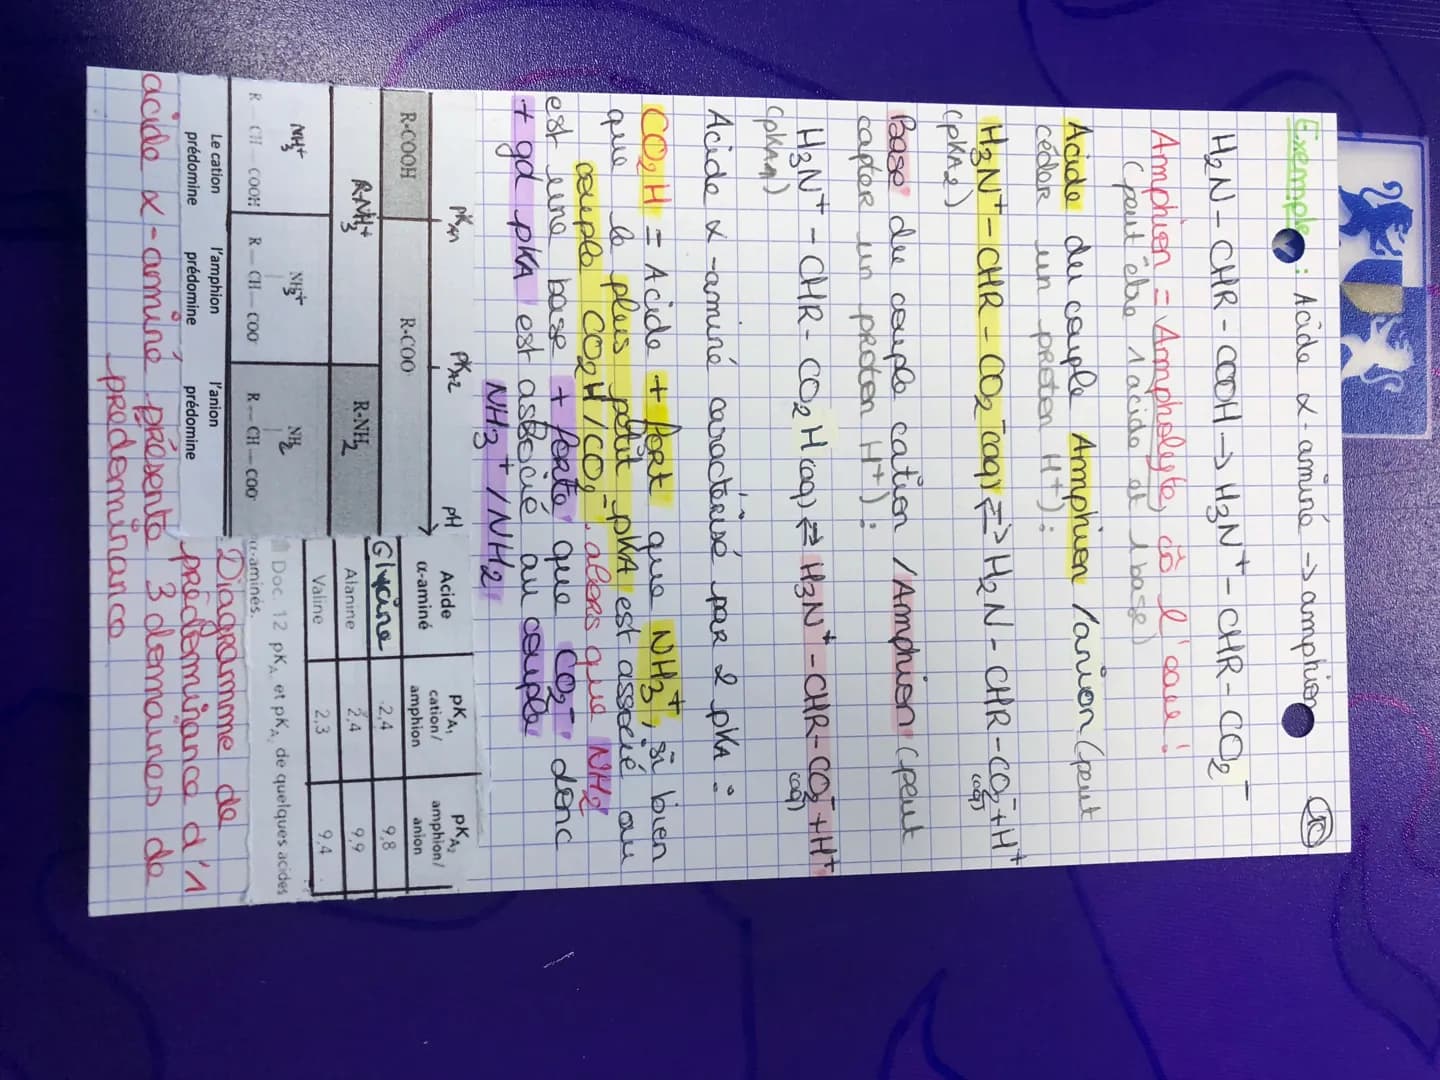 Exemple : Acide α-aminé → amphion
10
H₂N-CHR-COOH → H₃N⁺-CHR-CO₂⁻
Amphion = Ampholyte, cô l'eau !
(peut être 1 acide et 1 base)
Acide du couple Amphion / anion (peut
céder un proton H⁺) :
H₃N⁺-CHR-CO₂⁻(aq) ⇌ H₂N-CHR-CO₂⁻(aq) + H⁺
(pKA2)
Base du couple cation / Amphion (peut
capter un proton H⁺) :
H₃N⁺-CHR-CO₂H(aq) ⇌ H₃N⁺-CHR-CO₂⁻(aq) + H⁺
(pKA1)
Acide α-aminé caractérisé par 2 pKA :
CO₂H = Acide + fort que NH₃⁺, si bien
que le plus petit pKA est associé au
couple CO₂H/CO₂⁻ alors que NH₂
est une base + forte que CO₂⁻ donc
+ gd pKA est associé au couple
NH₃⁺/NH₂
pKA1 pKA2 pH
R-COOH R-COO⁻
R-NH₃⁺ R-NH₂
NH₃⁺ NH₃⁺ NH₂
R — CH — COOH R — CH — COO⁻ R — CH — COO⁻
Le cation prédomine
l'amphion prédomine
l'anion prédomine
Acide α-aminé pKA1 cation/amphion pKA2 amphion/anion
Glycine 2,4 9,8
Alanine 2,4 9,9
Valine 2,3 9,4
Doc. 12 pKA1 et pKA2 de quelques acides
α-aminés.
Diagramme de
prédominance d'1
acide α-aminé, présente 3 domaines de
prédominance